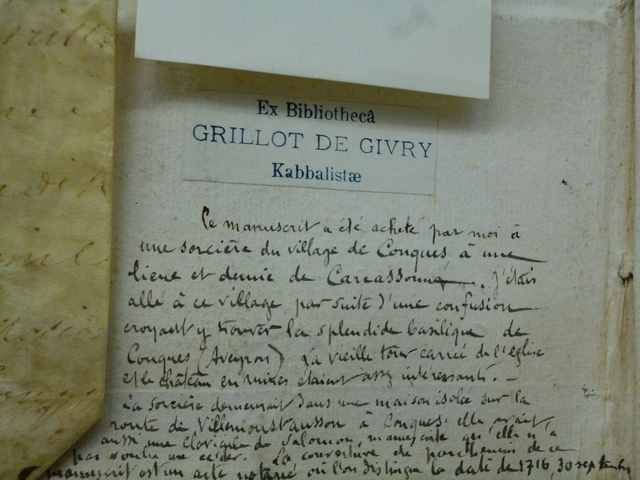 Ex Bibliothecâ
GRILLOT DE GIVRY
Kabbalistæ
Ce manuscrit a été acheté par moi à
une sorcière du village de Conques à une
lieue et demie de Carcassonne. J'étais
allé à ce village par suite d'une confusion
croyant y trouver la splendide basilique de
Conques (Aveyron) La vieille tour carrée de l'église
et le château en ruines étaient assez intéressants. —
La sorcière demeurait dans une maison isolée sur la
route de Villemoustausson à Conques; elle avait,
aussi, une clavicule de Salomon, manuscrite qu'elle n'a
pas voulu me céder. La couverture de parchemin de ce
manuscrit est un acte notarié où l'on distingue la date de 1716, 30 septembre